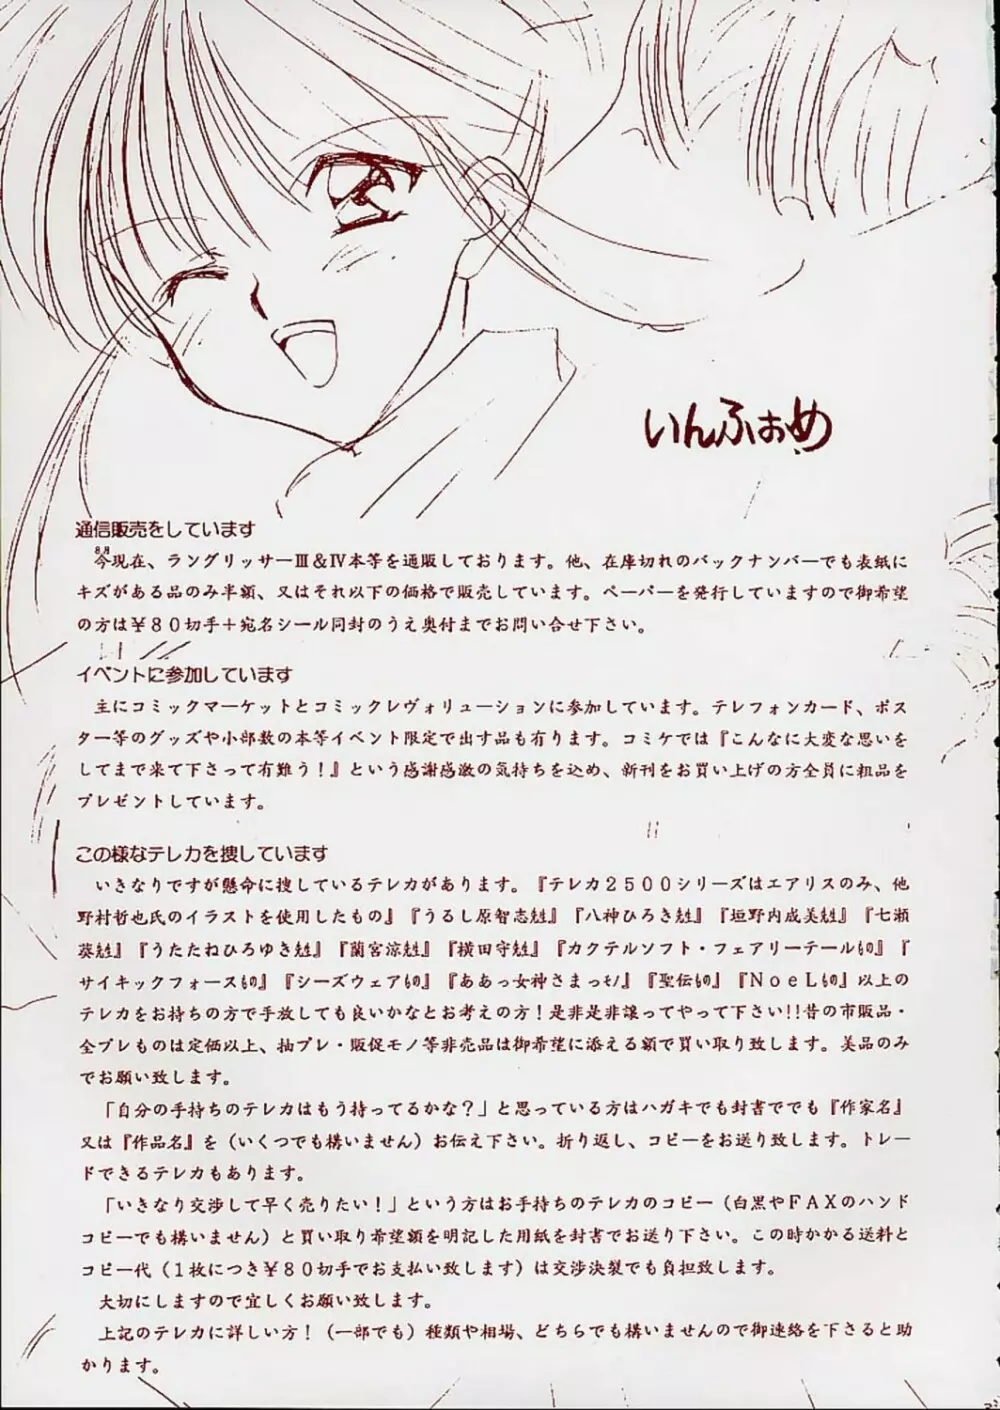 いんふぉめ
通信販売をしています
8月
今現在、ラングリッサーⅢ&Ⅳ本等を通販しております。他、在庫切れのバックナンバーでも表紙に
キズがある品のみ半額、又はそれ以下の価格で販売しています。ペーパーを発行していますので御希望
の方は￥８０切手＋宛名シール同封のうえ奥付までお問い合せ下さい。
イベントに参加しています
主にコミックマーケットとコミックレヴォリューションに参加しています。テレフォンカード、ポス
ター等のグッズや小部数の本等イベント限定で出す品も有ります。コミケでは『こんなに大変な思いを
してまで来て下さって有難う！』という感謝感激の気持ちを込め、新刊をお買い上げの方全員に粗品を
プレゼントしています。
この様なテレカを捜しています
いきなりですが懸命に捜しているテレカがあります。『テレカ２５００シリーズはエアリスのみ、他
野村哲也氏のイラストを使用したもの』『うるし原智志魅』『八神ひろき魅』『垣野内成美魅』『七瀬
葵魅』『うたたねひろゆき魅』『蘭宮涼魅』『横田守魅』『カクテルソフト・フェアリーテールもの』『
サイキックフォースもの』『シーズウェアもの』『ああっ女神さまっモノ』『聖伝もの』『ＮｏｅＬもの』以上の
テレカをお持ちの方で手放しても良いかなとお考えの方！是非是非譲ってやって下さい!!昔の市販品・
全プレものは定価以上、抽プレ・販促モノ等非売品は御希望に添える額で買い取り致します。美品のみ
でお願い致します。
「自分の手持ちのテレカはもう持ってるかな？」と思っている方はハガキでも封書ででも『作家名』
又は『作品名』を（いくつでも構いません）お伝え下さい。折り返し、コピーをお送り致します。トレー
ドできるテレカもあります。
「いきなり交渉して早く売りたい！」という方はお手持ちのテレカのコピー（白黒やＦＡＸのハンド
コピーでも構いません）と買い取り希望額を明記した用紙を封書でお送り下さい。この時かかる送料と
コピー代（１枚につき￥８０切手でお支払い致します）は交渉決裂でも負担致します。
大切にしますので宜しくお願い致します。
上記のテレカに詳しい方！（一部でも）種類や相場、どちらでも構いませんので御連絡を下さると助
かります。